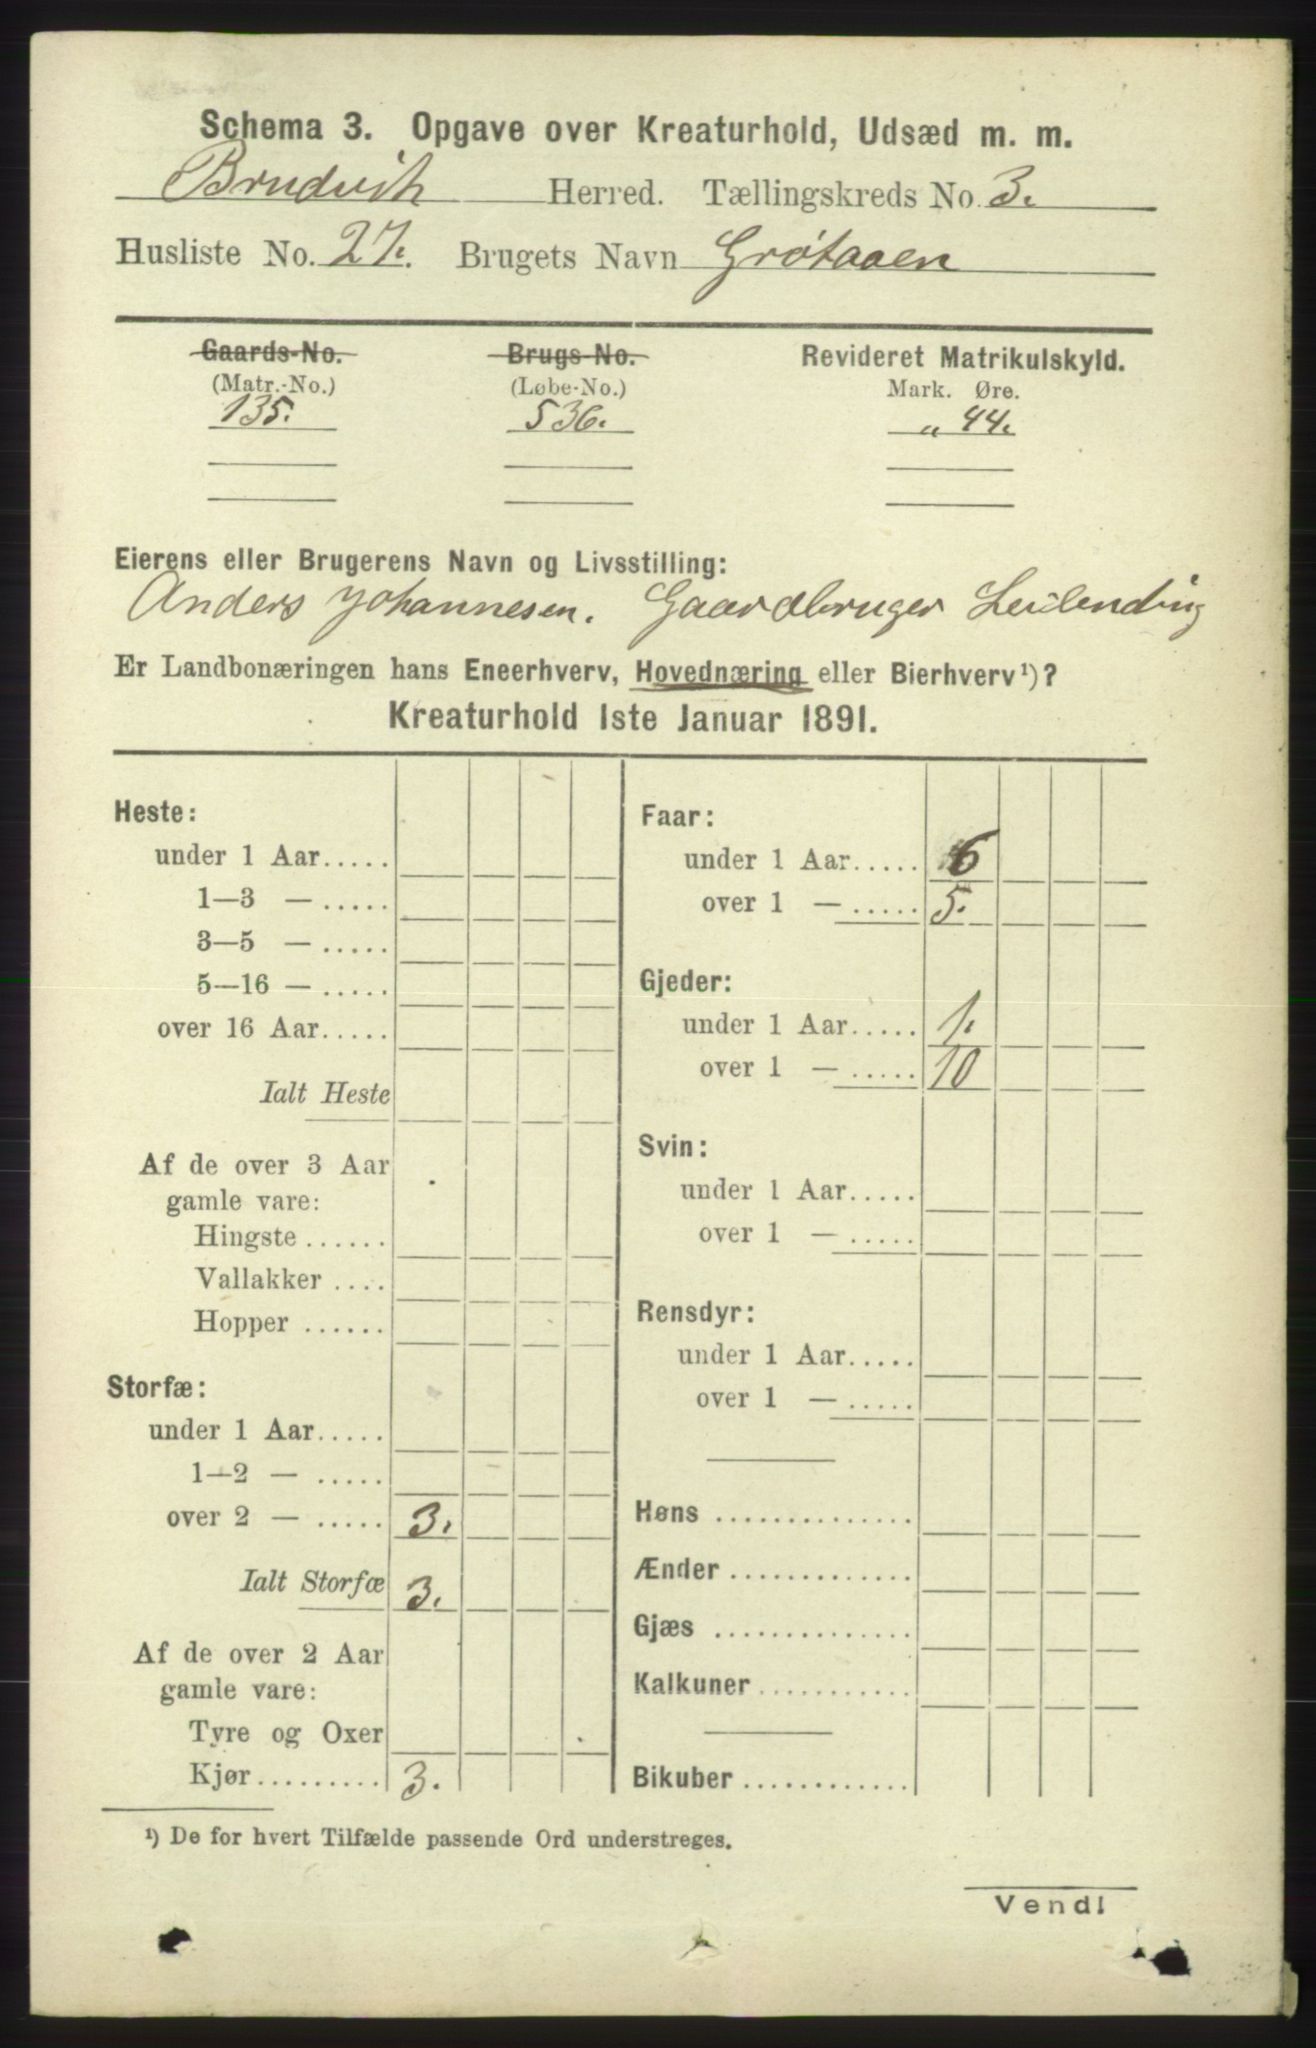 Schema 3. Opgave over Kreaturhold, Udsæd m. m.
Brudvik Herred. Tællingskreds No. 3.
Husliste No. 27. Brugets Navn Grøtaaen
Gaards-No. Brugs-No. Revideret Matrikulskyld.
(Matr.-No.) (Løbe-No.) Mark. Øre.
135. 536. " 44.
Eierens eller Brugerens Navn og Livsstilling:
Anders Johannesen. Gaardbruger Leilending
Er Landbonæringen hans Eneerhverv, Hovednæring eller Bierhverv¹)?
Kreaturhold 1ste Januar 1891.
Heste:
under 1 Aar.....
1—3 — .....
3—5 — .....
5—16 — .....
over 16 Aar.....
Ialt Heste
Af de over 3 Aar
gamle vare:
Hingste ......
Vallakker ....
Hopper ......
Storfæ:
under 1 Aar.....
1—2 — .....
over 2 — ..... 3.
Ialt Storfæ 3.
Af de over 2 Aar
gamle vare:
Tyre og Oxer
Kjør......... 3.
Faar:
under 1 Aar..... 6
over 1 — ..... 5.
Gjeder:
under 1 Aar..... 1.
over 1 — ..... 10
Svin:
under 1 Aar.....
over 1 — .....
Rensdyr:
under 1 Aar.....
over 1 — .....
Høns ..............
Ænder .............
Gjæs ..............
Kalkuner...........
Bikuber ............
¹) De for hvert Tilfælde passende Ord understreges.
Vend!